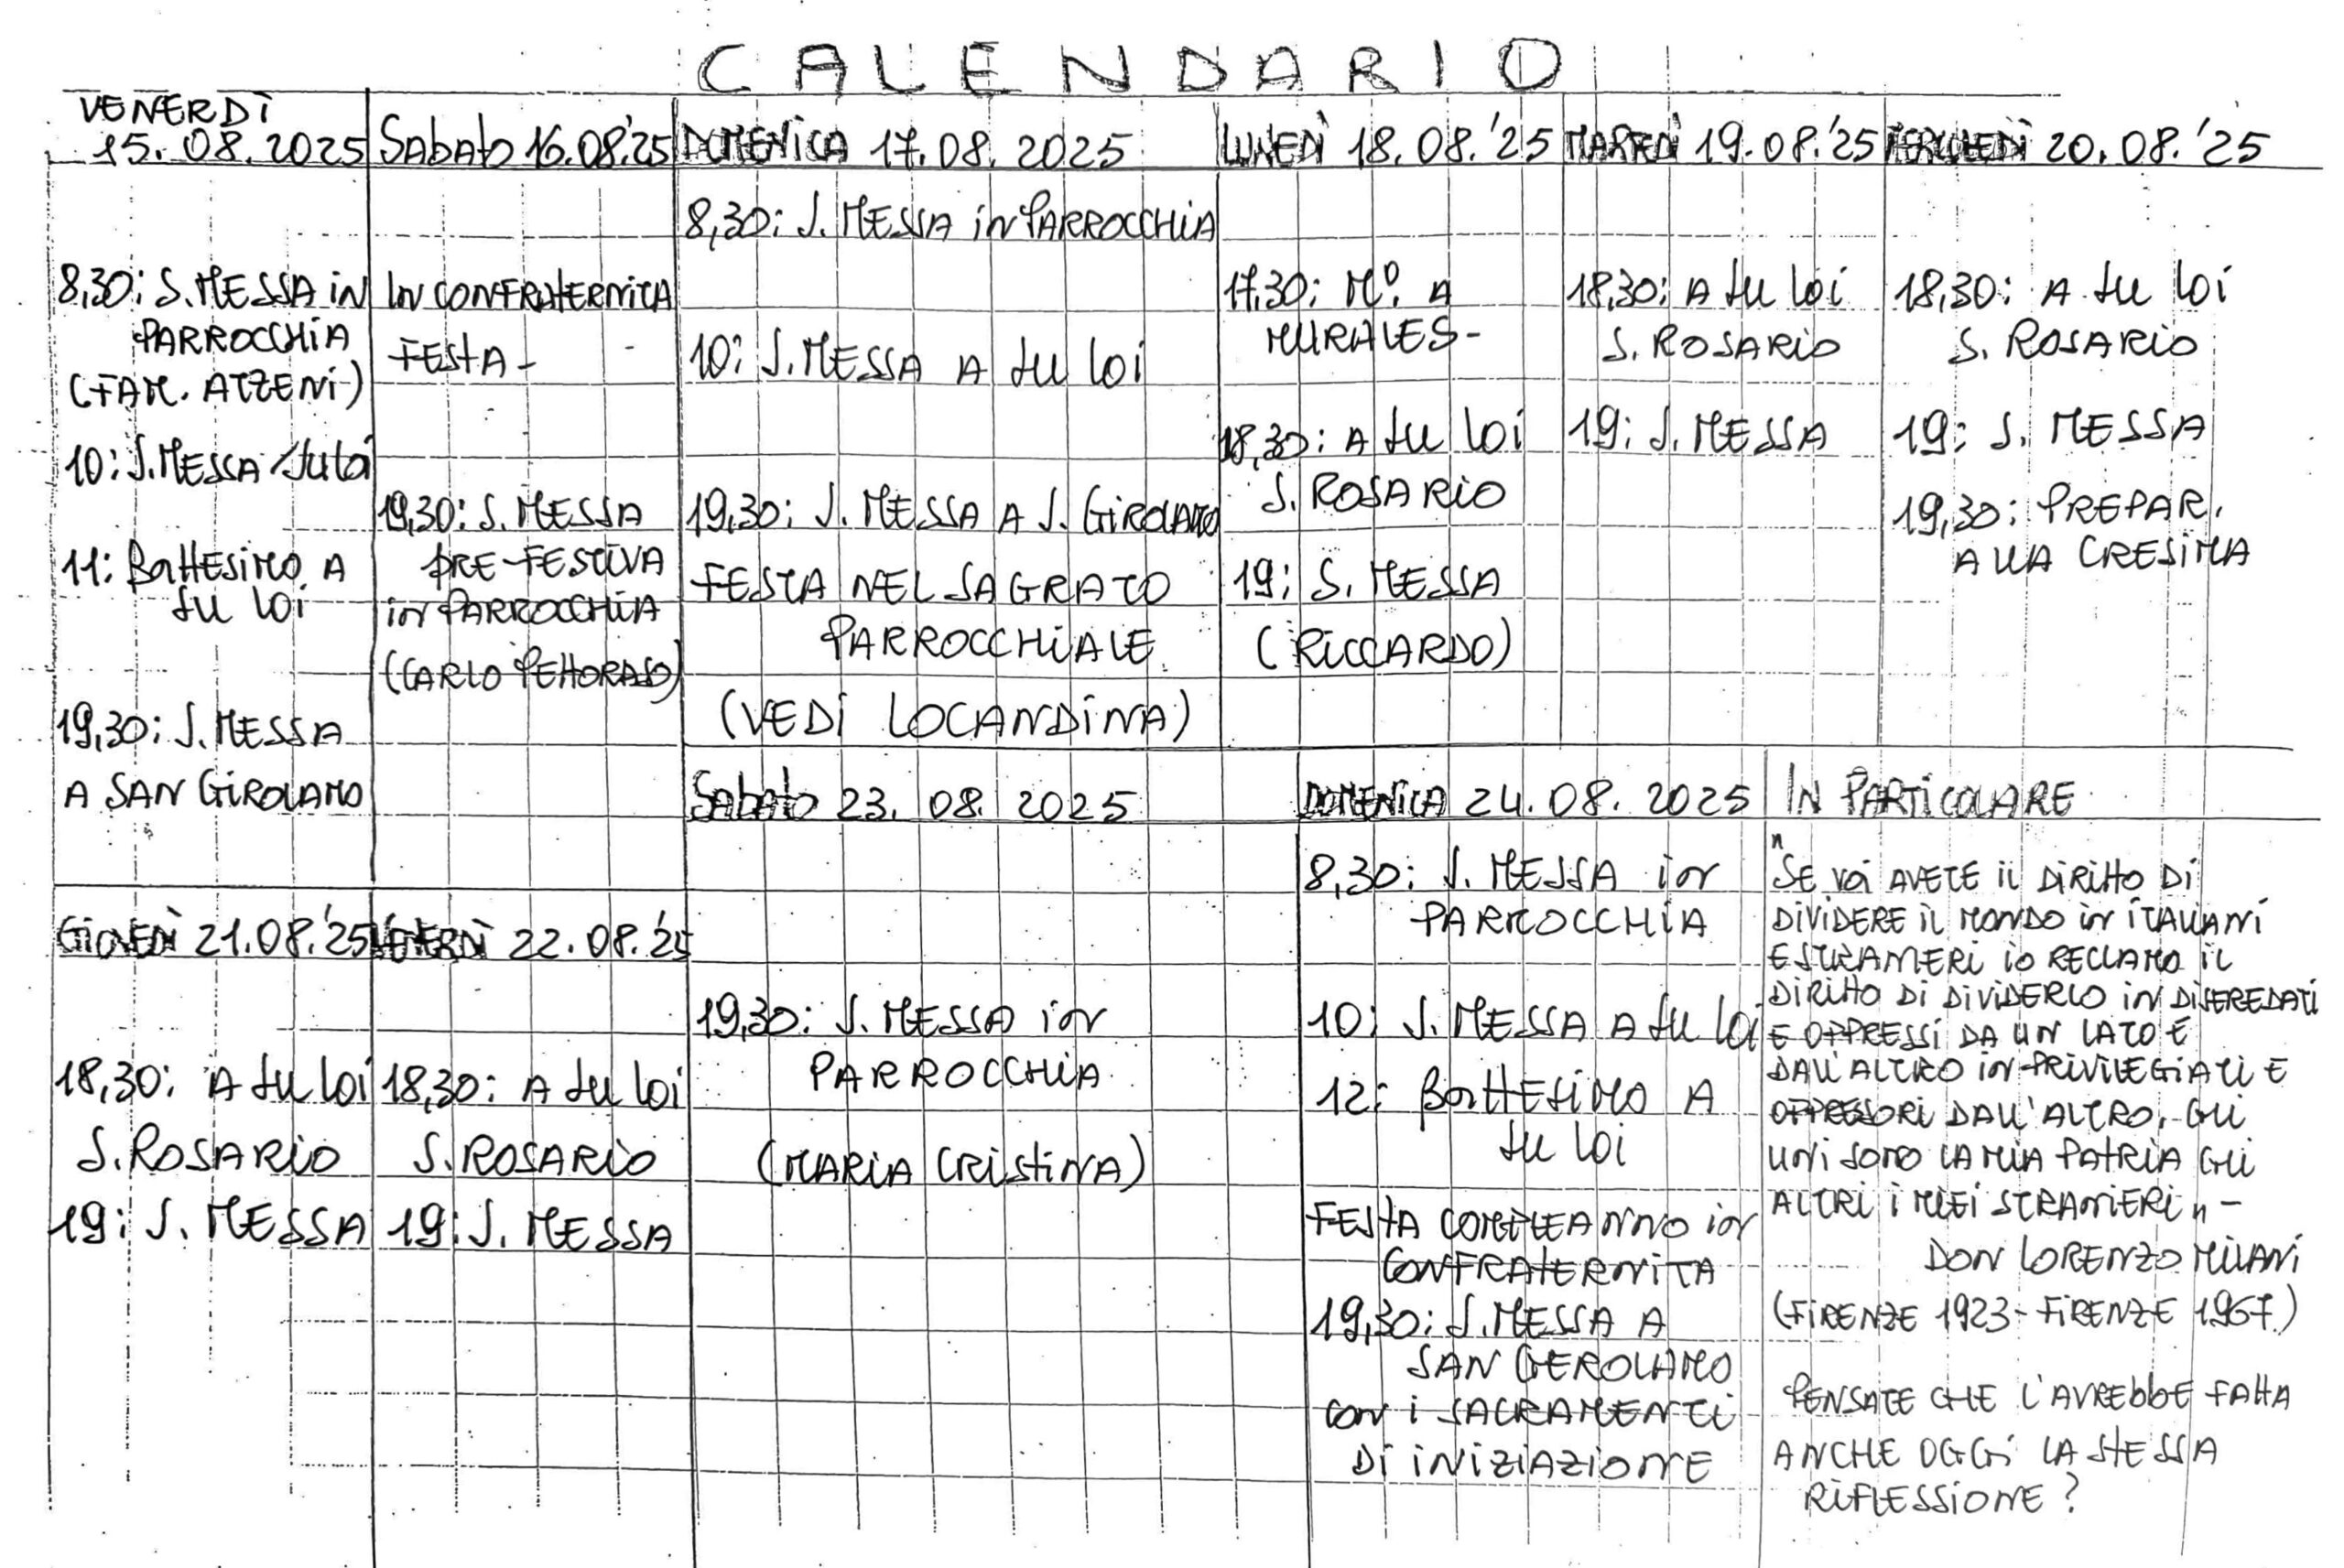 CALENDARIO
VENERDÌ
15.08.2025
8,30: S. MESSA IN
PARROCCHIA
(FAM. ATZENI)
10: S. MESSA
11: BATTESIMO A
SU LOI
19,30: S. MESSA
A SAN GIROLAMO
SABATO 16.08.'25
IN CONFRATERNITA
FESTA-
19,30: S. MESSA
PRE-FESTIVA
IN PARROCCHIA
(CARLO
DOMENICA 17.08.2025
8,30: S. MESSA IN PARROCCHIA
10: S. MESSA A SU LOI
19,30: S. MESSA A S. GIROLAMO
FESTA NEL SAGRATO
PARROCCHIALE
(VEDI LOCANDINA)
LUNEDÌ 18.08.'25
17,30: A
MURALES-
18,30: A SU LOI
S. ROSARIO
19: S. MESSA
(RICCARDO)
MARTEDÌ 19.08.'25
18,30: A SU LOI
S. ROSARIO
19: S. MESSA
MERCOLEDÌ 20.08.'25
18,30: A SU LOI
S. ROSARIO
19: S. MESSA
19,30: PREPAR.
ALLA CRESIMA
GIOVEDÌ 21.08.'25
18,30: A SU LOI
S. ROSARIO
19: S. MESSA
VENERDÌ 22.08.'25
18,30: A SU LOI
S. ROSARIO
19: S. MESSA
SABATO 23.08.2025
19,30: S. MESSA IN
PARROCCHIA
(MARIA CRISTINA)
DOMENICA 24.08.2025
8,30: S. MESSA IN
PARROCCHIA
10: S. MESSA A SU LOI
12: BATTESIMO A
SU LOI
FESTA COMPLEANNO IN
CONFRATERNITA
19,30: S. MESSA A
SAN GEROLAMO
CON I SACRAMENTI
DI INIZIAZIONE
IN PARTICOLARE
"SE VOI AVETE IL DIRITTO DI
DIVIDERE IL MONDO IN ITALIANI
E STRANIERI IO RECLAMO IL
DIRITTO DI DIVIDERLO IN DISEREDATI
E OPPRESSI DA UN LATO E
DALL'ALTRO IN PRIVILEGIATI E
OPPRESSORI DALL'ALTRO. GLI
UNI SONO LA MIA PATRIA GLI
ALTRI I MIEI STRANIERI"-
DON LORENZO MILANI
(FIRENZE 1923-FIRENZE 1967)
PENSATE CHE L'AVREBBE FATTA
ANCHE OGGI LA STESSA
RIFLESSIONE?